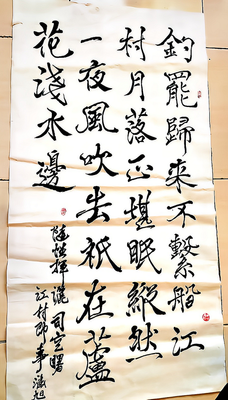 钓罷歸来不繫船江
村月落正堪眠縱然
一夜風吹去祇在蘆
花淺水邊
司空曙
江村即事